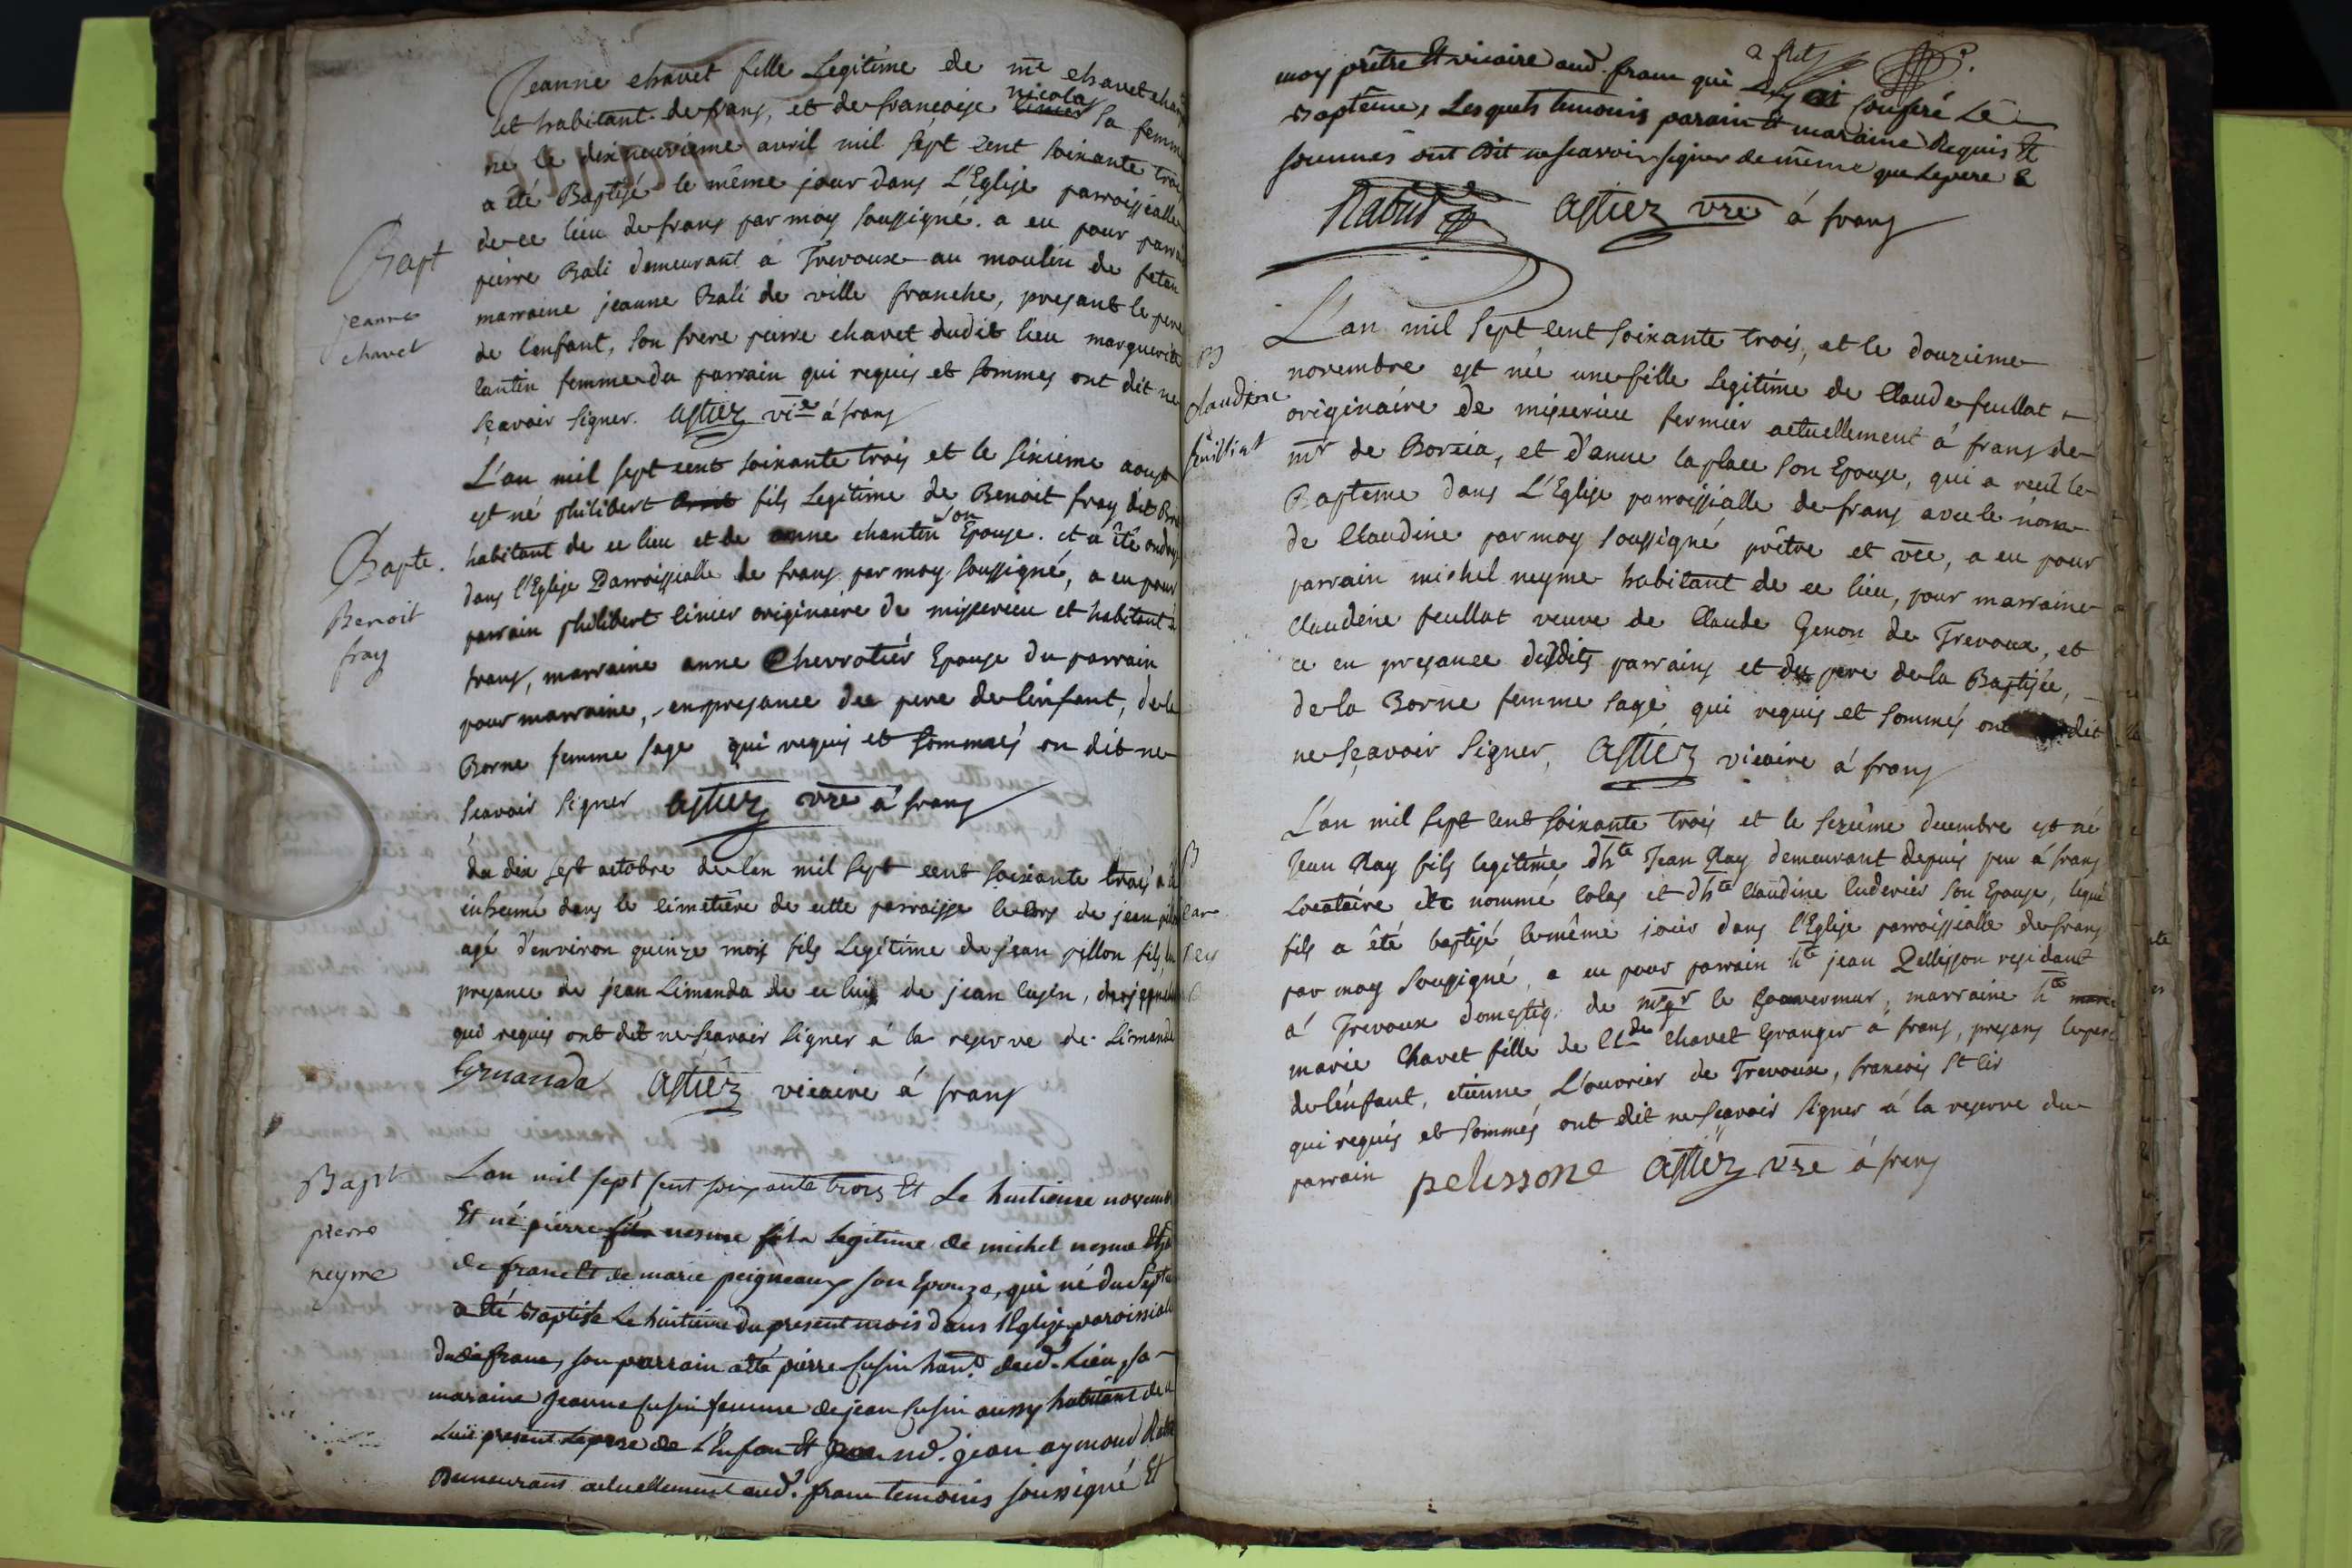 Jeanne chavet fille Legitime de me chavet
et habitant de frans, et de francoise nicolas Sa femme
ne le dixneuvième avril mil sept cent soixante trois
a été Baptisé le même jour dans L'Eglise parroissialle
de ce lieu de frans par moy soussigné. a eu pour parrain
pierre Bali demeurant à Trevoux au moulin de fetan
marraine jeanne Bali de ville franche, presant le pere
de l'enfant, son frere pierre chavet dudit lieu marguerite
lantin femme du parrain qui requis et sommes ont dit ne
sçavoir signer. Astier vie à frans
Bapt
jeanne
chavet
L'an mil sept cent soixante trois et le sixieme aoust
est né philibert fils Legitime de Benoit fray dit
habitant de ce lieu et de anne chantin son Epouse. et a été ondoyé
dans l'Eglise Parroissialle de frans par moy soussigné, a eu pour
parrain philibert cinier originaire de misserieu et habitant à
frans, marraine anne Chervotier Epouse du parrain
pour marraine, en presance du pere de l'enfant, de la
Borne femme sage qui requis et sommés on dit ne
scavoir signer Astier vre à frans
Bapte.
Benoit
fray
du dix sept octobre de l'an mil sept cent soixante trois a été
inhumé dans le cimetière de cette parroisse le corps de jean pillon
agé d'environ quinze mois fils Legitime de jean pillon fils, en
presance de jean Limanda de ce lieu de jean cusin,
qui requis ont dit ne scavoir signer à la reserve de Limanda
Limanda Astier vicaire à frans
L'an mil sept cent soixante trois Et Le huitieme novembre
Et né pierre nesme fils Legitime de michel nesme
de franc Et de marie peigneaux son Epouze, qui né du sept
a Eté Baptisé Le huitieme du present mois dans l'Eglise paroissiale
dud. franc, son parrain a été pierre Cusin hant. dud. Lieu, sa
maraine Jeanne Cusin femme de jean Cusin aussy habitant de ce
Lieu present Le pere de l'Enfan Et jean aymond Rabud
Demeurant actuellement aud. franc temoins soussigné Et
Bapt
pierre
neyme
moy prêtre Et vicaire aud. franc qui a conferé Le
Baptême, Lesquels temoins parain Et maraine Requis Et
sommés ont dit ne scavoir signer de même que Le pere
Rabud Astier vre à frans
L'an mil sept cent soixante trois, et le douzieme
novembre est née une fille Legitime de Claude feullat
originaire de miserieu fermier actuellement à frans de
mr de Borsia, et d'anne laplace son Epouse, qui a reçu le
Bapteme dans L'Eglise parroissialle de frans avec le nom
de Claudine par moy soussigné prêtre et vre, a eu pour
parrain michel neyme habitant de ce lieu, pour marraine
Claudine feullat veuve de Claude Genon de Trevoux, et
ce en presance desdits parrains et du pere de la Baptisée,
de la Borne femme sage qui requis et sommés ont dit
ne sçavoir signer, Astier vicaire à frans
B
Claudine
feuillat
L'an mil sept cent soixante trois et le sezieme decembre est né
Jean Ray fils legitime d'hte Jean Ray demeurant depuis peu à frans
Locataire de nommé Colas et d'hte Claudine luderier son Epouse, lequel
fils a été baptisé le même jour dans l'Eglise parroissialle de frans
par moy soussigné, a eu pour parrain hte jean Pellisson residant
à Trevoux domestiq. de mgr le Gouverneur, marraine hte
marie Chavet fille de Clde Chavet Granger à frans, presans le pere
de l'enfant, etienne L'ouvrier de Trevoux, francois St Cir
qui requis et sommés ont dit ne scavoir signer à la reserve du
parrain pelissone Astier vre à frans
B